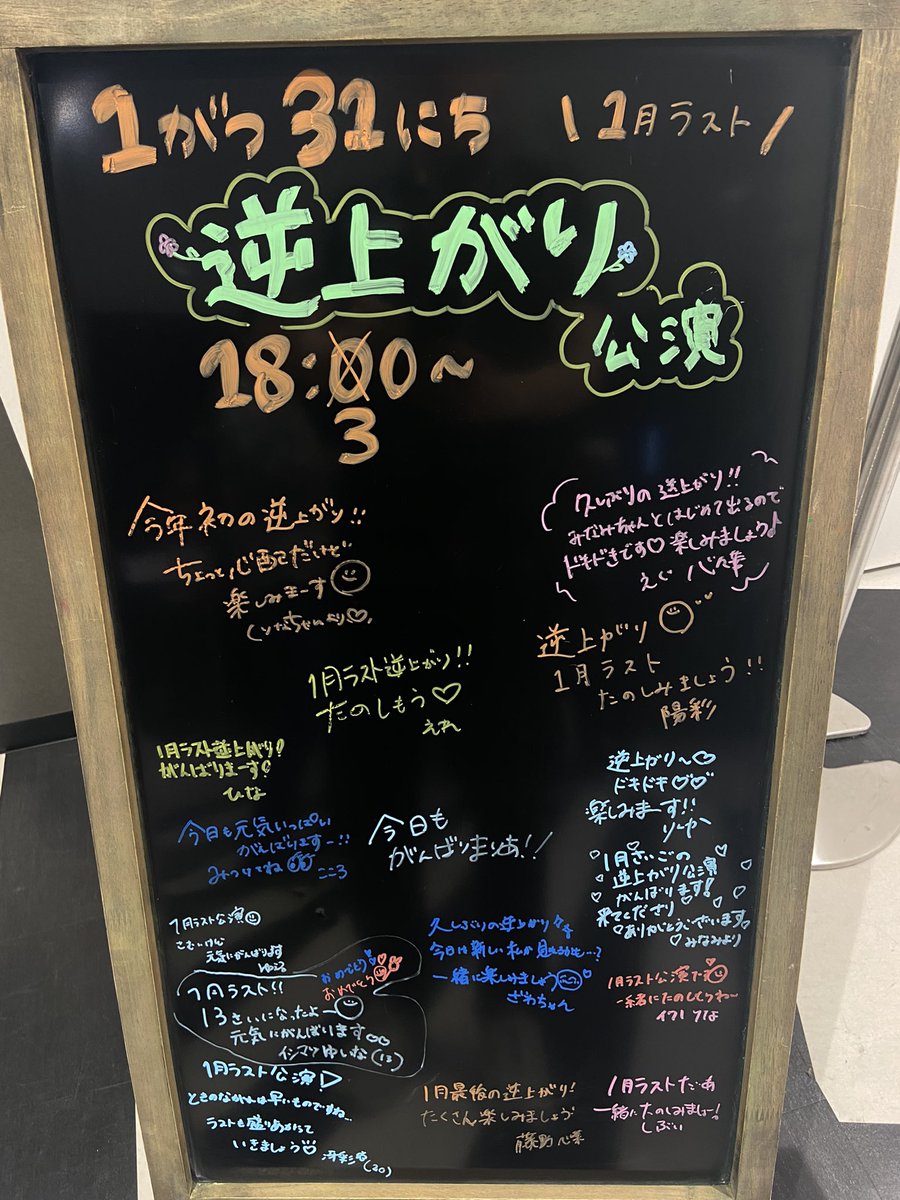 1がつ31にち \1月ラスト/
逆上がり
公演
18:00~
3
今年初の逆上がり!!
ちょっと心配だけど
楽しみまーす
久しぶりの逆上がり!!
みなみちゃんとはじめて出るので
ドキドキです♡楽しみましょう♪
えぐ
逆上がり
1月ラスト
たのしみましょう!!
陽彩
1月ラスト逆上がり!!
たのしもう♡
えれ
1月ラスト逆上がり!
がんばりまーす!
ひな
逆上がり~♡
ドキドキ♡♡
楽しみまーす!!
りーゆ
今日も元気いっぱい
がんばりますー!!
みつけてね
こころ
今日も
がんばりまりあ!!
1月さいごの
逆上がり公演
がんばります!
来てくださり
ありがとうございます
みなみより
1月ラスト公演
元気いがんばります
久しぶりの逆上がり
今日は新しい私が見えるかも…?
一緒に楽しみましょう
ざわちゃん
おめでとう
おめでとう
1月ラスト!!
13さいになったよー
元気にがんばります
イシマツゆいな(13)
1月ラスト公演だ
一緒にたのしもうねー
1月ラスト公演!
ときのながれは早いものですね...
ラストも盛りあがって
いきましょう
(20)
1月最後の逆上がり!
たくさん楽しみましょう
藤野心菜
1月ラストだあ
一緒にたのしみましょー!
しぶい